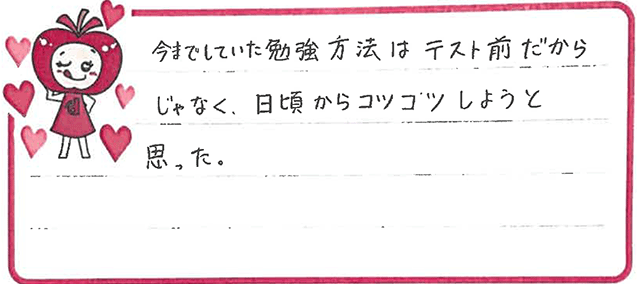 今までしていた勉強方法はテスト前だから
じゃなく、日頃からコツコツしようと
思った。